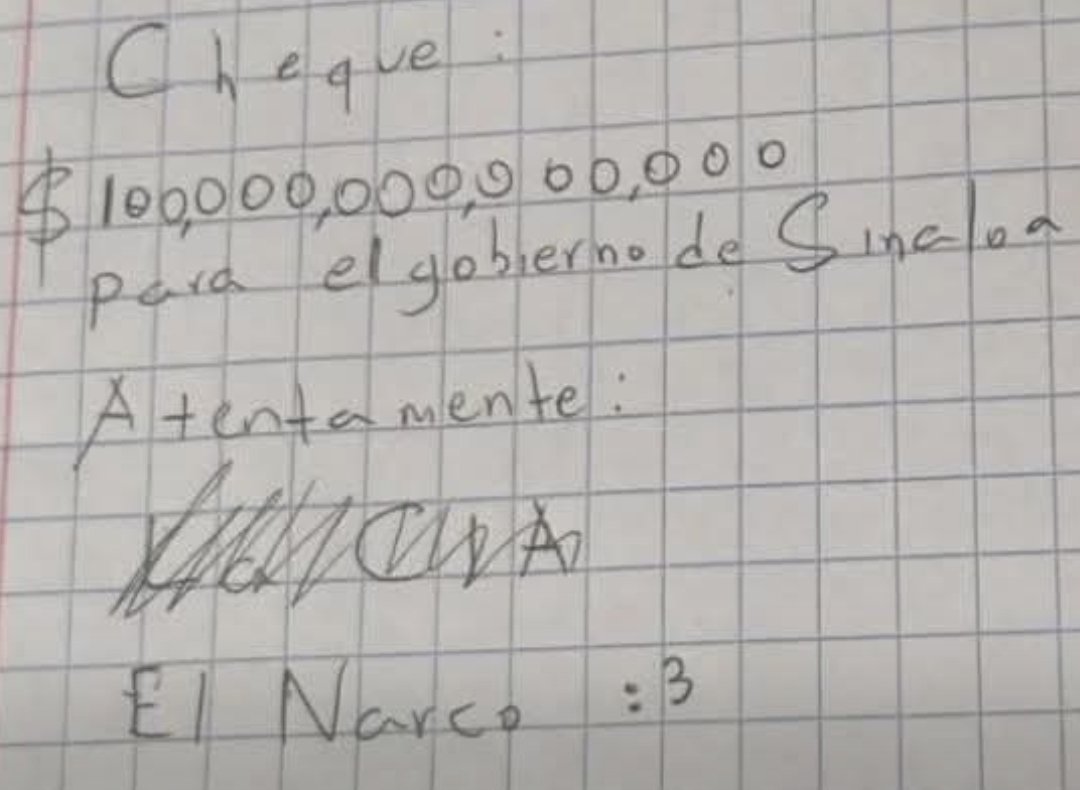 Cheque:
$100,000,000,000,000
para el gobierno de Sinaloa
Atentamente:
La CIA
El Narco :3